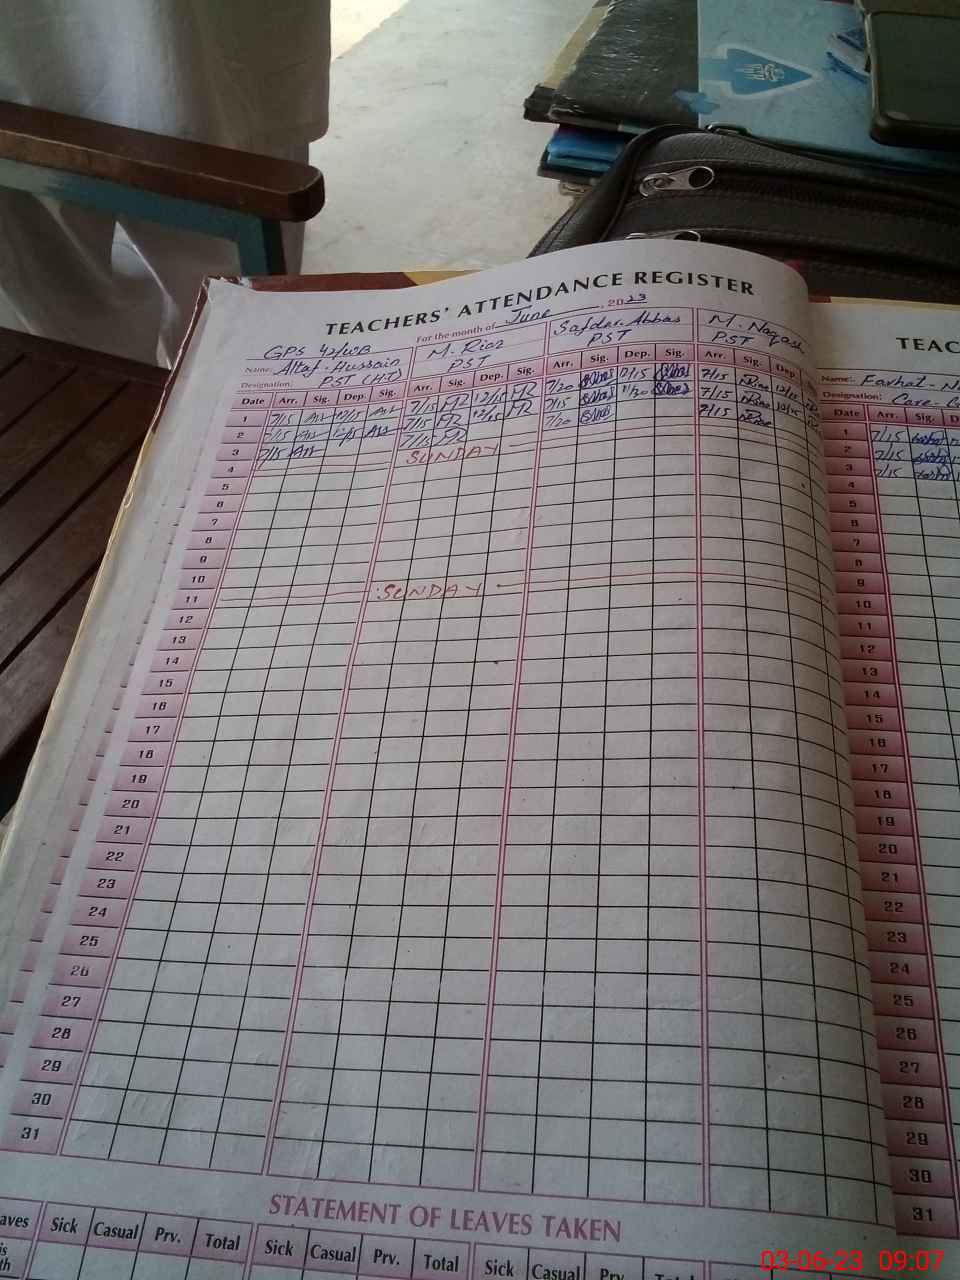 TEACHERS' ATTENDANCE REGISTER
For the month of June 2023
GPS 42/WB
Name: Altaf Hussain M. Riaz Safdar Abbas M. Naqash
Designation: PST (H.T) PST PST PST
Date Arr. Sig. Dep. Sig. Arr. Sig. Dep. Sig. Arr. Sig. Dep. Sig. Arr. Sig. Dep.
1 7/15 12/15 7/15 12/15 7/20 7/15
2 7/15 12/15 7/15 12/15 7/15 7/15
3 7/15 7/15 7/20 7/15
4 SUNDAY
5
6
7
8
9
10
11 SUNDAY
12
13
14
15
16
17
18
19
20
21
22
23
24
25
26
27
28
29
30
31
STATEMENT OF LEAVES TAKEN
Sick Casual Prv. Total Sick Casual Prv. Total Sick Casual Prv. Total
TEAC
Name: Farhat
Designation:
Date Arr. Sig.
1 7/15
2 7/15
3 7/15
4
5
6
7
8
9
10
11
12
13
14
15
16
17
18
19
20
21
22
23
24
25
26
27
28
29
30
31
03-06-23 09:07